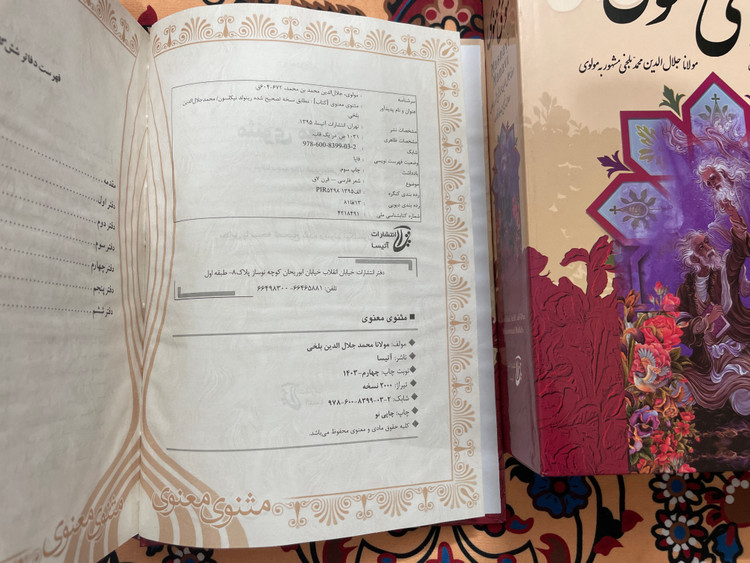 فهرست دفاتر شش
مقدمه
دفتر اول
دفتر دوم
دفتر سوم
دفتر چهارم
دفتر پنجم
دفتر ششم
سرشناسه : مولوی، جلال‌الدین محمد بن محمد، ۶۷۲-۶۰۴ق.
عنوان و نام پدیدآور : مثنوی معنوی [کتاب] : مطابق نسخه تصحیح شده رینولد نیکلسون/ محمد جلال‌الدین بلخی
مشخصات نشر : تهران: انتشارات آتیسا، ۱۳۹۵
مشخصات ظاهری : ۱۰۳۱ ص. در یک قاب.
شابک : 978-600-8399-03-2
وضعیت فهرست نویسی : فاپا
یادداشت : چاپ سوم
موضوع : شعر فارسی -- قرن ۷ق.
رده بندی کنگره : PIR۵۲۹۸ ۱۳۹۵
رده بندی دیویی : ۸۱۳۱
شماره کتابشناسی ملی : ۴۲۱۸۴۹۱
انتشارات
آتیسا
دفتر انتشارات: خیابان انقلاب خیابان ابوریحان کوچه نوساز پلاک۸- طبقه اول
تلفن: ۶۶۴۶۵۸۸۱- ۶۶۴۹۸۳۰۰
■ مثنوی معنوی
◆ مولف: مولانا محمد جلال الدین بلخی
◆ ناشر: آتیسا
◆ نوبت چاپ: چهارم-۱۴۰۳
◆ تیراژ: ۲۰۰۰ نسخه
◆ شابک: ۲-۰۳-۸۳۹۹-۶۰۰-۹۷۸
◆ چاپ: چاپی نو
◆ کلیه حقوق مادی و معنوی محفوظ می‌باشد.
مثنوی معنوی
مثنوی معنوی
مولانا جلال الدین محمد بلخی مشهور به مولوی